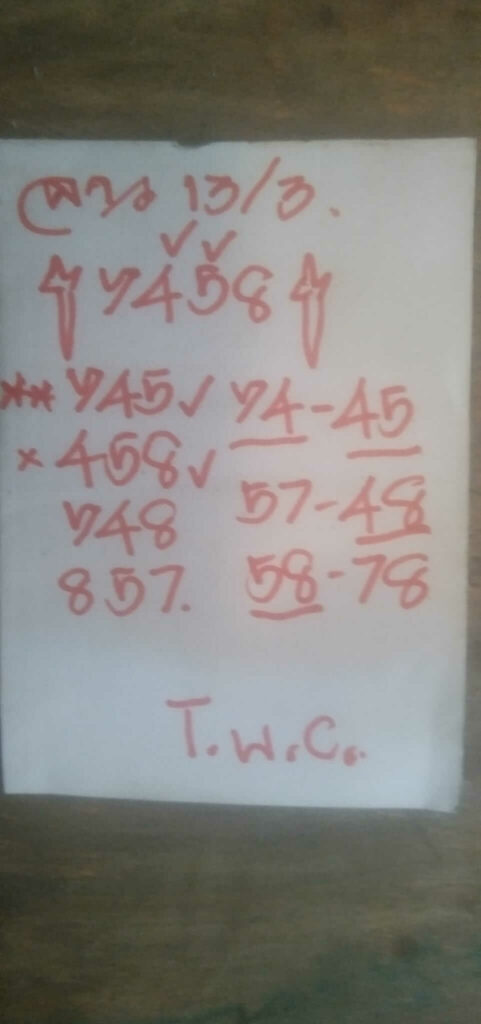 ลาว 13/3.
✓✓
7458
** 745✓ 74-45
× 458✓
57-48
748
857. 58-78
T.W.C.